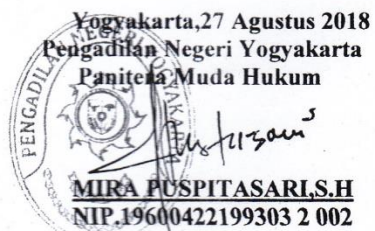 Yogyakarta,27 Agustus 2018
Pengadilan Negeri Yogyakarta
Panitera Muda Hukum
PENGADILAN NEGERI YOGYAKARTA
MIRA PUSPITASARI,S.H
NIP.19600422199303 2 002